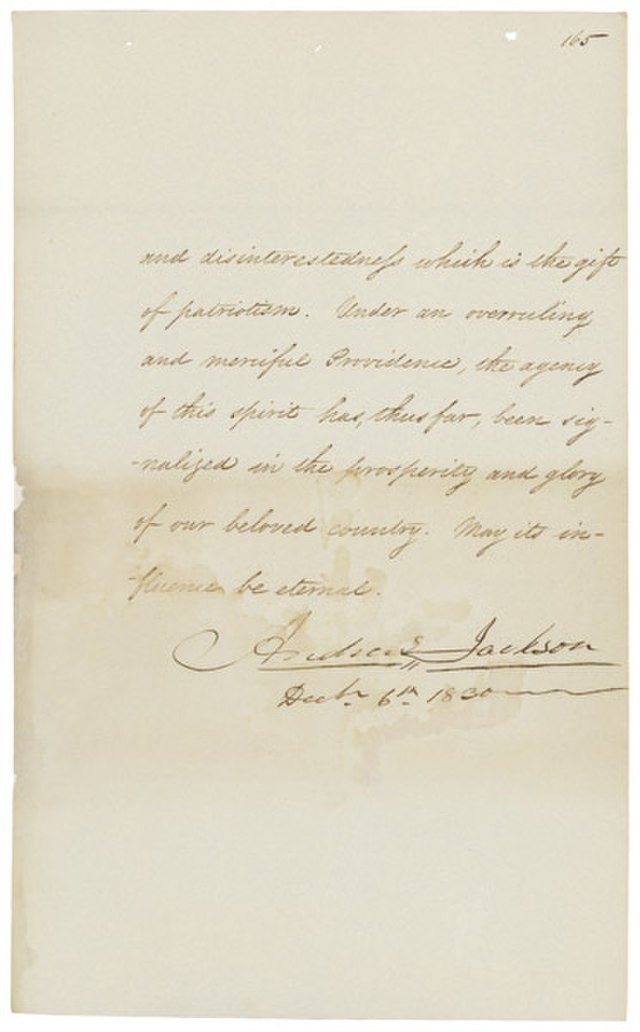 165
and disinterestedness which is the gift
of patriotism. Under an overruling
and merciful Providence, the agency
of this spirit has, thus far, been sig-
-nalized in the prosperity and glory
of our beloved country. May its in-
-fluence be eternal.
Andrew Jackson
Decbr. 6th. 1830